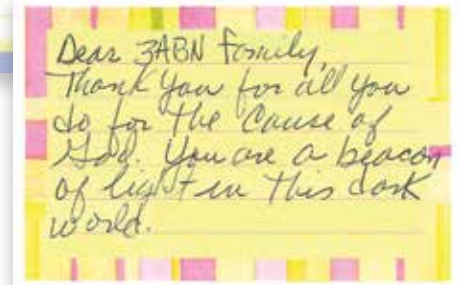 Dear 3ABN Family,
Thank you for all you
do for the cause of
God. You are a beacon
of light in this dark
world.